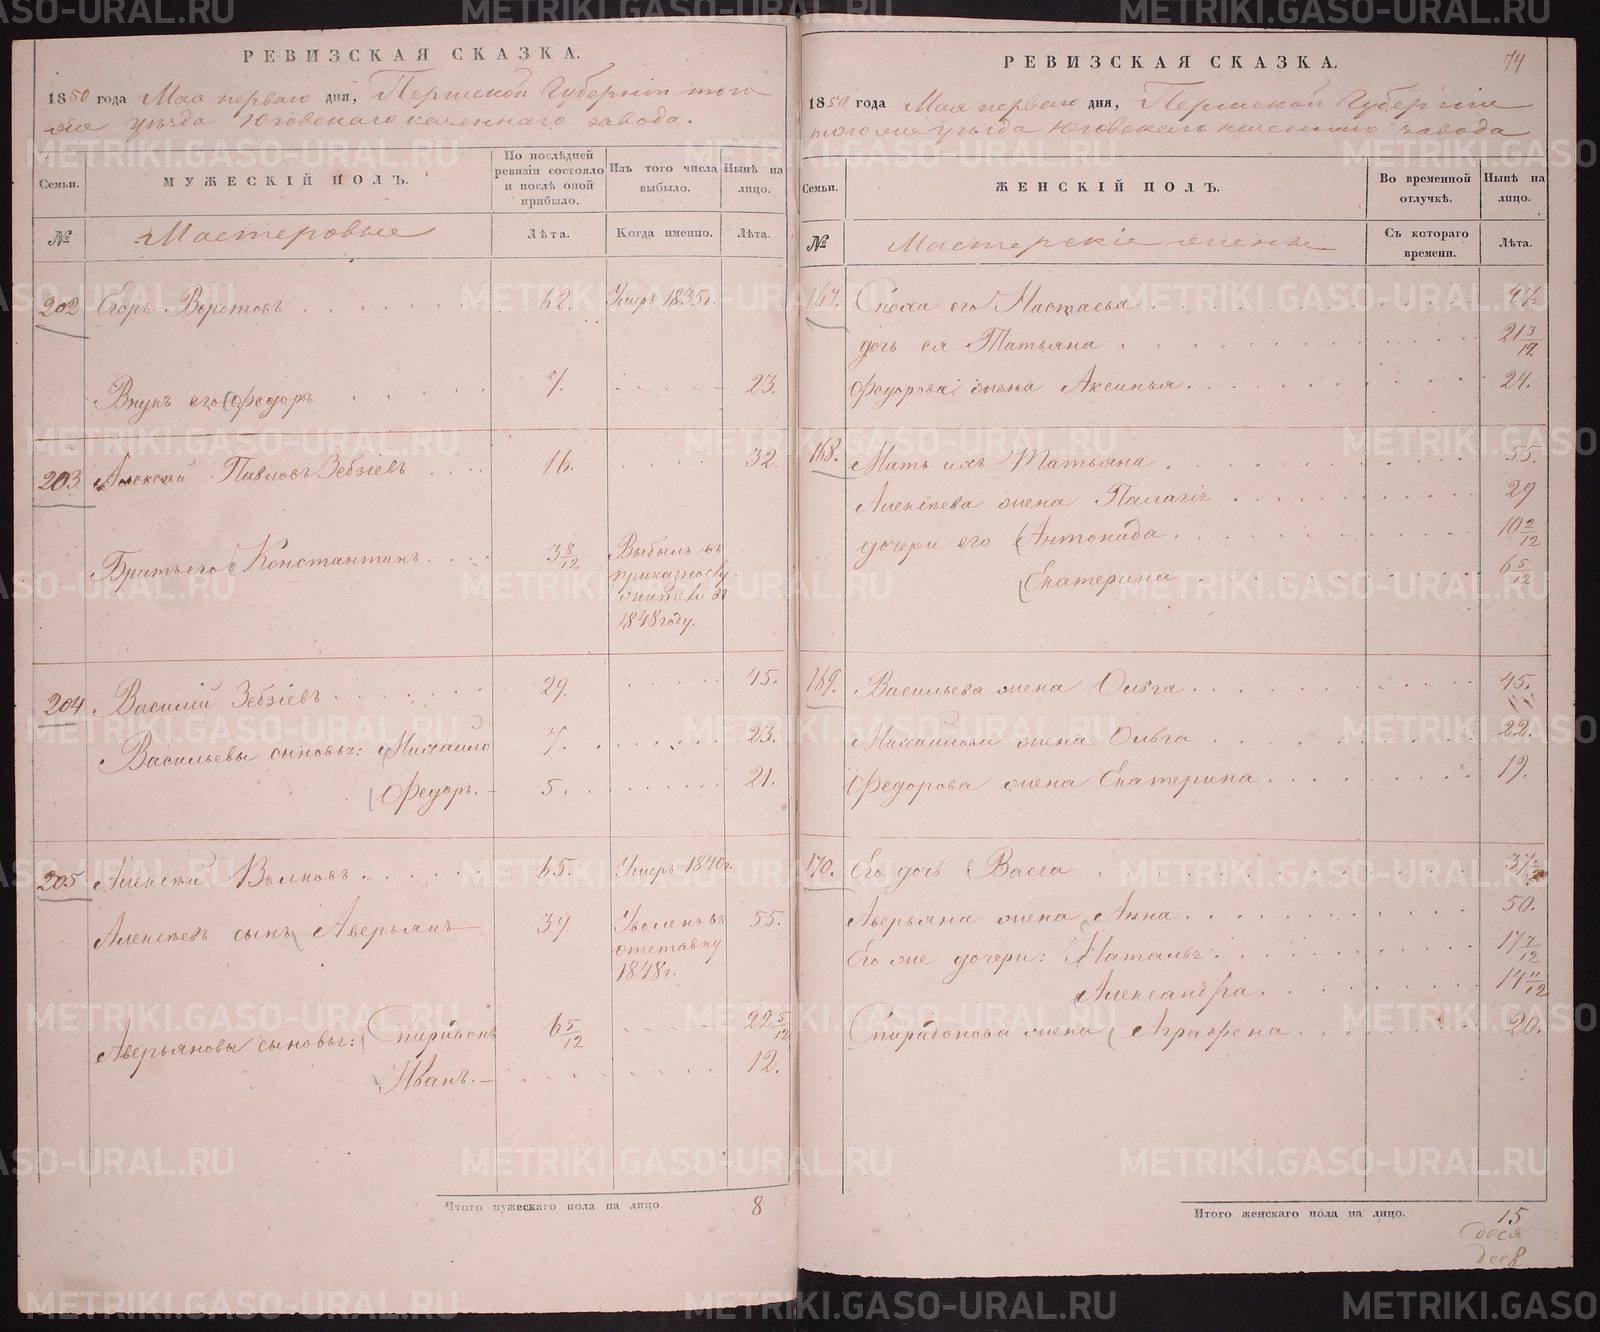 РЕВИЗСКАЯ СКАЗКА.
1850 года Мая перваго дня, Пермской Губерніи того
же уѣзда Юговскаго казеннаго завода.
Семьи.
МУЖЕСКІЙ ПОЛЪ.
По послѣдней ревизіи состояло и послѣ оной прибыло.
Изъ того числа выбыло.
Нынѣ на лицо.
№
Мастеровые
Лѣта.
Когда именно.
Лѣта.
202 Егоръ Воротовъ 62. Умеръ 1835 г.
Внукъ его Федоръ 7. 23.
203 Алексѣй Павловъ Зебзѣевъ 16. 32.
Братъ его Константинъ 3 8/12 Выбылъ въ
1848 году.
204 Василій Зебзѣевъ 29. 45.
Васильевы сыновья: Михаило 7. 23.
Федоръ. 5. 21.
205 Алексѣй Волковъ 65. Умеръ 1840 г.
Алексѣевъ сынъ Аверьянъ 39 Уволенъ въ 55.
отставку
1848 г.
Аверьяновы сыновья: Спиридонъ 6 5/12 22 5/12
Иванъ. 12.
Итого мужескаго пола на лицо 8
74
РЕВИЗСКАЯ СКАЗКА.
1850 года Мая перваго дня, Пермской Губерніи
того же уѣзда Юговскаго казеннаго завода
Семьи.
ЖЕНСКІЙ ПОЛЪ.
Во временной отлучкѣ.
Нынѣ на лицо.
№
Мастерскіе жены
Съ котораго времени.
Лѣта.
167. Сноха его Настасья 47.
дочь ея Татьяна 21 3/12
Федорова жена Аксинья 24.
168. Мать ихъ Татьяна 55.
Алексѣева жена Палагія 29
дочери его Антонида 10 2/12
Екатерина 6 5/12
169. Васильева жена Ольга 45.
Михайлова жена Ольга 22.
Федорова жена Екатерина 19.
170. Его дочь Васса 37.
Аверьяна жена Анна 50.
Его же дочери: Наталья 17 7/12
Александра 14 11/12
Спиридонова жена Аграфена 20.
Итого женскаго пола на лицо. 15
METRIKI.GASO-URAL.RU